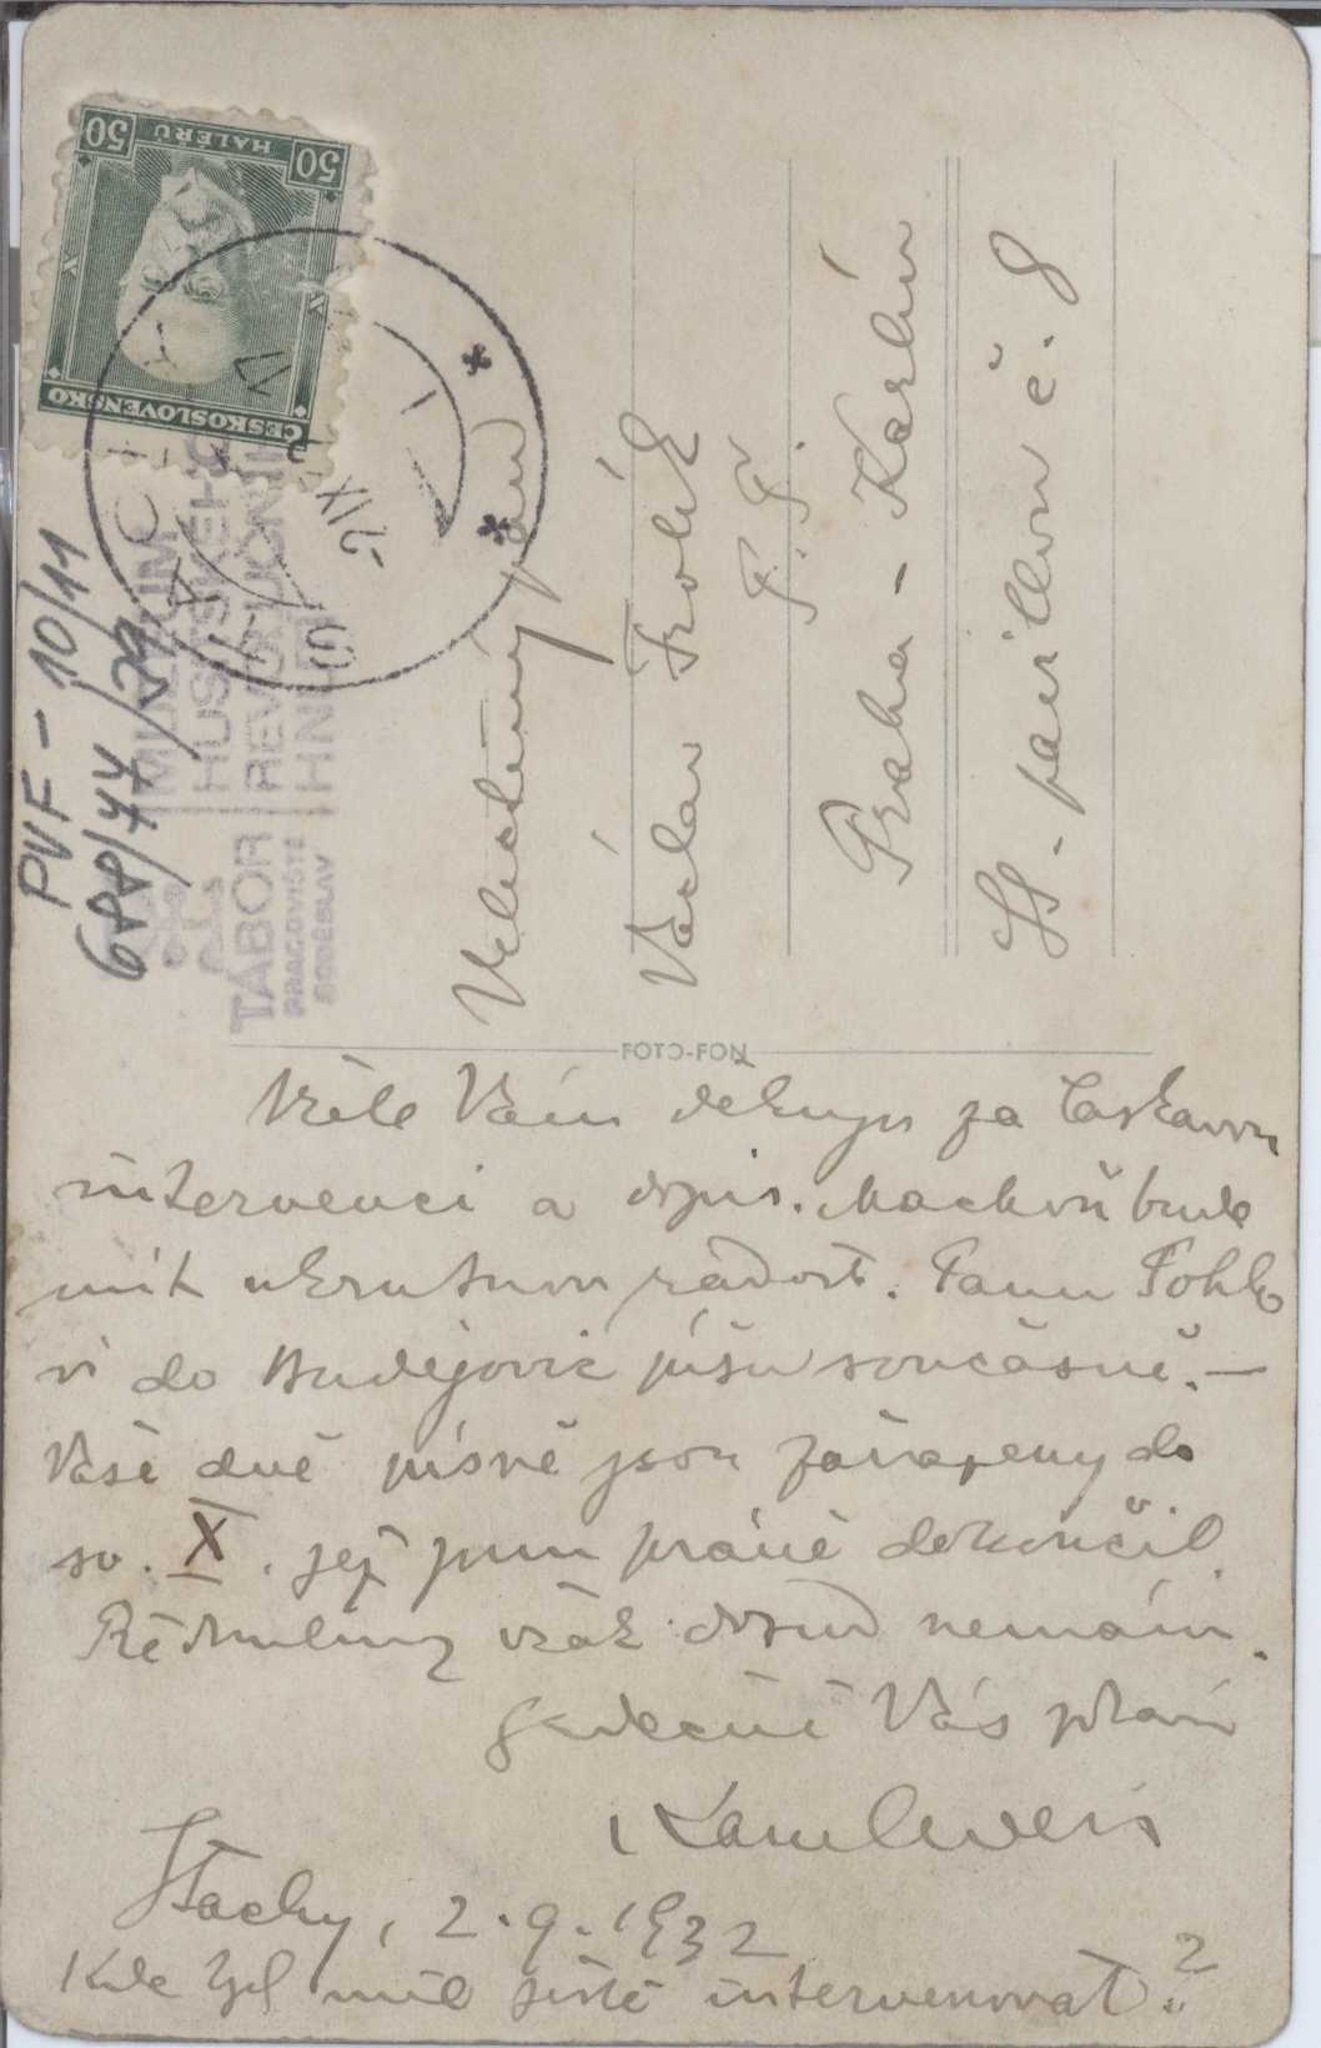 50 HALÉŘŮ 50
ČESKOSLOVENSKO
PVF - 10/11
688/44/29
MUZEUM
HUSITSKÉHO
TÁBOR REVOLUČNÍHO
PRACOVIŠTĚ HNUTÍ
SOBĚSLAV
2 IX
Velectěný pán
Václav
Praha - Karlín
pavillon č. 8
FOTO-FON
Vřele Vám děkuji za laskavou
intervenci a dopis. bude
mít ukrutnou radost. Panu Pohlo
vi do Budějovic píšu současně. —
Vaše dvě písně jsou zařazeny do
sv. X. jejž jsem právě dokončil.
však dosud nemám.
Srdečně Vás zdraví
Karel Weis
Stachy, 2.9.1932
Kde byl měl příště intervenovat?